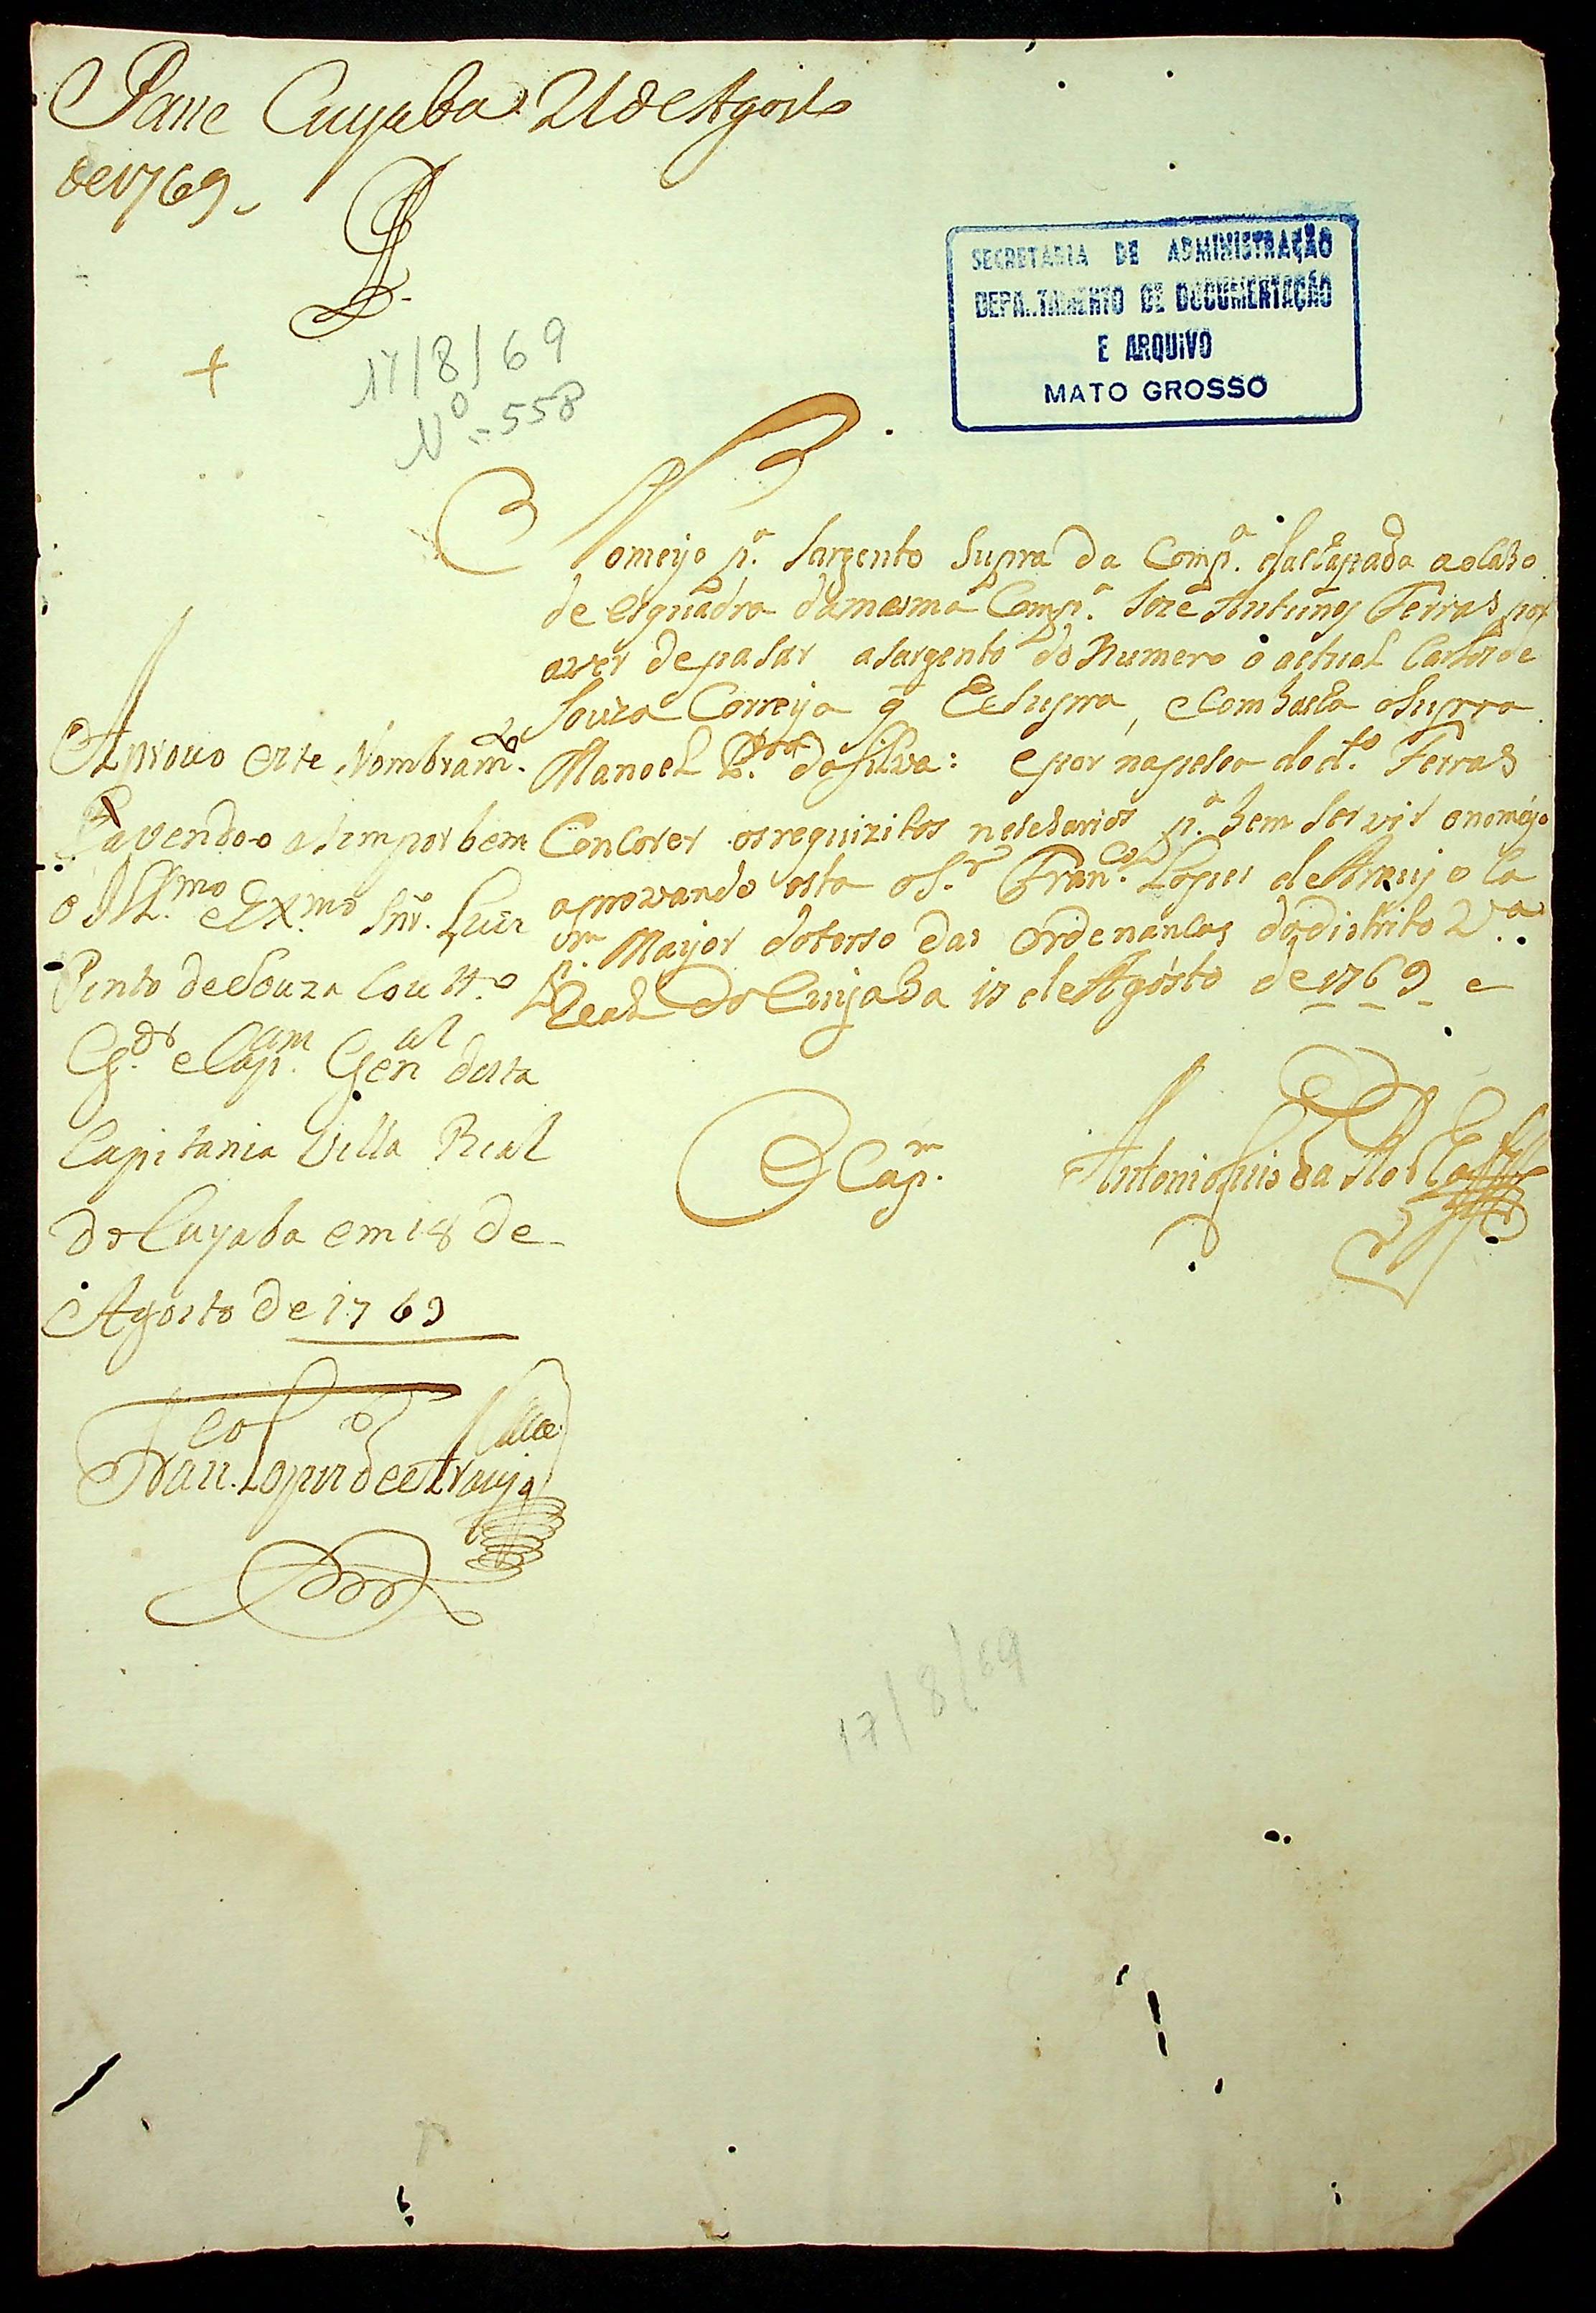 Passe Cuyaba 21 de Agosto
de 1769
17/8/69
Nº = 558
SECRETARIA DE ADMINISTRAÇÃO
DEPARTAMENTO DE DOCUMENTAÇÃO
E ARQUIVO
MATO GROSSO
Nomeyo p.ª Sargento Supra da Comp.ª aocabo
de esquadra damesma Comp.ª Joze Antunes Ferras por
aver depasar asargento do Numero o actual Carlos de
Souza Correya q̃ he supra, ecom osupra
Manoel da Silva: epor napesoa do d.º Ferras
Concorer osrequizitos nesesarios p.ª bem servir onomeyo
aprovando esta oS.r Fran.co Lopes de Araujo Ca
p.m Mayor doterso das Ordenansas dodistrito V.ª
Real do Cuyaba 17 de Agosto de 1769
O Cap.m Antonio Luis da Rocha
Aprouo este Nombram.to
havendo-o asimpor bem
o Ill.mo e Ex.mo Snr. Luiz
Pinto de Souza Coutt.o
G.or e Cap.am Gen.al desta
Capitania Villa Real
do Cuyaba em 18 de
Agosto de 1769
Fran.co Lopes de Araujo
17/8/69